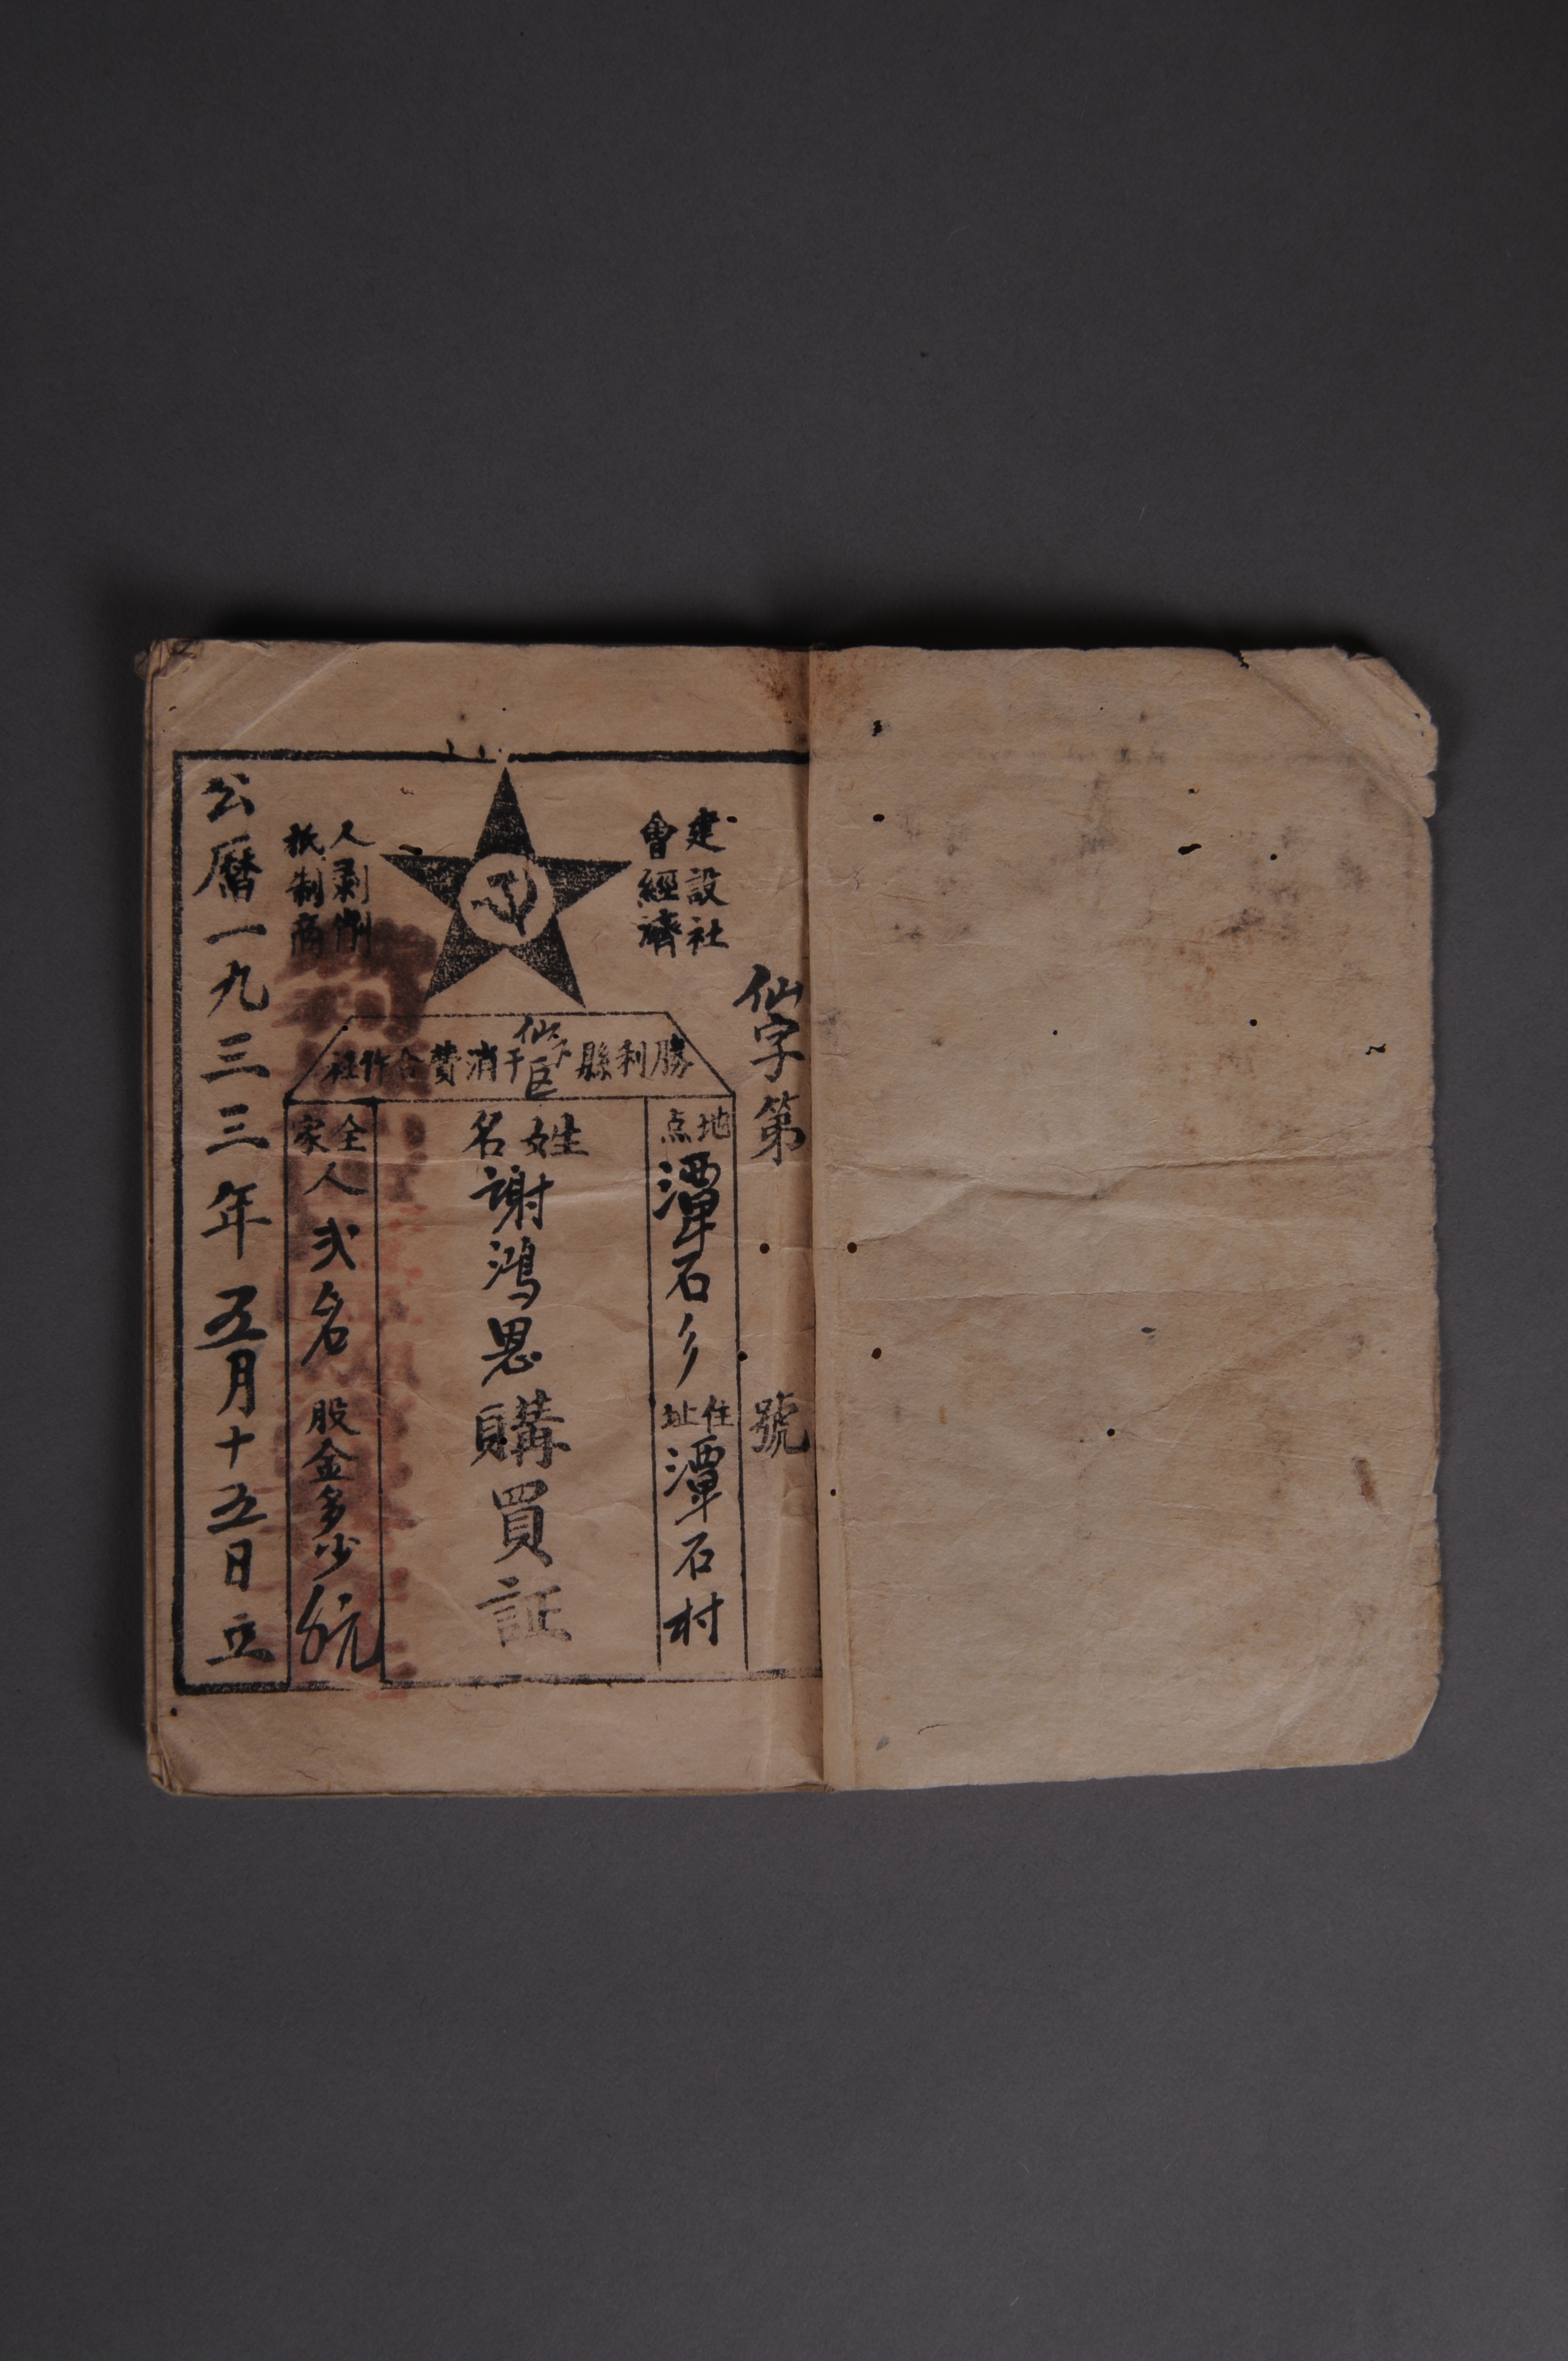 仙字第 號
建設社
會經濟
人剥削
抵制商
勝利縣仙下区消費合作社
地点 潭石乡 住址 潭石村
姓名 謝鴻恩 購買証
全家人弍名 股金多少
公曆一九三三年五月十五日立